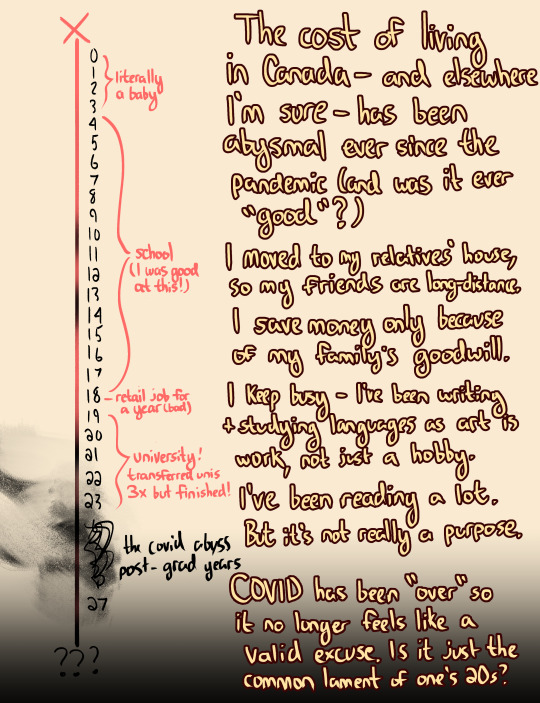 0
1
2
3
literally
a baby
4
5
6
7
8
9
10
11
12
13
14
15
16
17
18
school
(I was good
at this!)
retail job for
a year (bad)
19
20
21
22
23
university!
transferred unis
3x but finished!
the covid abyss
post-grad years
27
???
The cost of living
in Canada - and elsewhere
I'm sure - has been
abysmal ever since the
pandemic (and was it ever
"good"?)
I moved to my relatives' house,
so my friends are long-distance.
I save money only because
of my family's goodwill.
I keep busy - I've been writing
+ studying languages as art is
work, not just a hobby.
I've been reading a lot.
But it's not really a purpose.
COVID has been "over" so
it no longer feels like a
valid excuse. Is it just the
common lament of one's 20s?